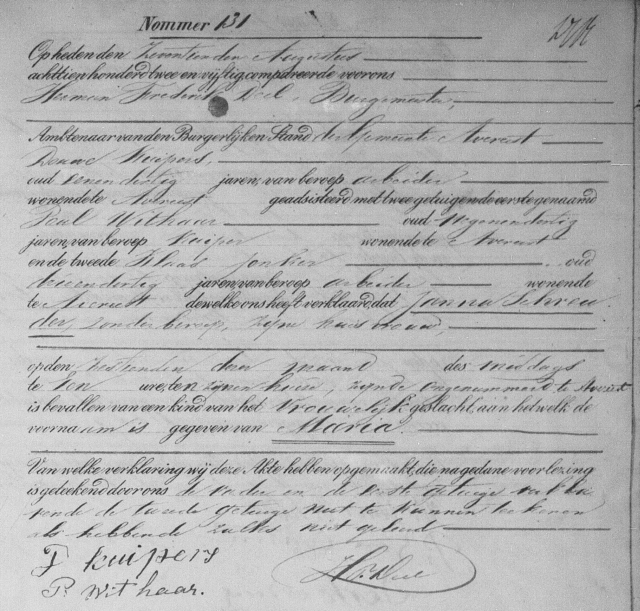 Nommer 131
Op heden den Zeventienden Augustus
achttien honderd twee en vijftig compareerde voor ons
Herman Frederik
Burgemeester,
Ambtenaar van den Burgerlijken Stand der Gemeente Avereest
Douwe Kuipers
oud eenendertig jaren, van beroep arbeider
wonende te Avereest geadsisteerd met twee getuigen de eerste genaamd
Paul Withaar oud negenendertig
jaren, van beroep Kuiper wonende te Avereest
en de tweede Klaas Jonker oud
jaren, van beroep arbeider wonende
te Avereest dewelke ons heeft verklaard, dat Janna Schreu
der, zonder beroep, zijne huisvrouw,
op den Zestienden dezer maand des middags
te ure, ten zijnen huize, zijnde ongenummerd te Avereest
is bevallen van een kind van het Vrouwelijk geslacht, aan hetwelk de
voornaam is gegeven van Maria
Van welke verklaring wij deze Akte hebben opgemaakt, die na gedane voorlezing
is geteekend door ons de vader en de eerste getuige verkla
rende de tweede getuige niet te kunnen teekenen
als hebbende zulks niet geleerd
Kuipers
P. Withaar.